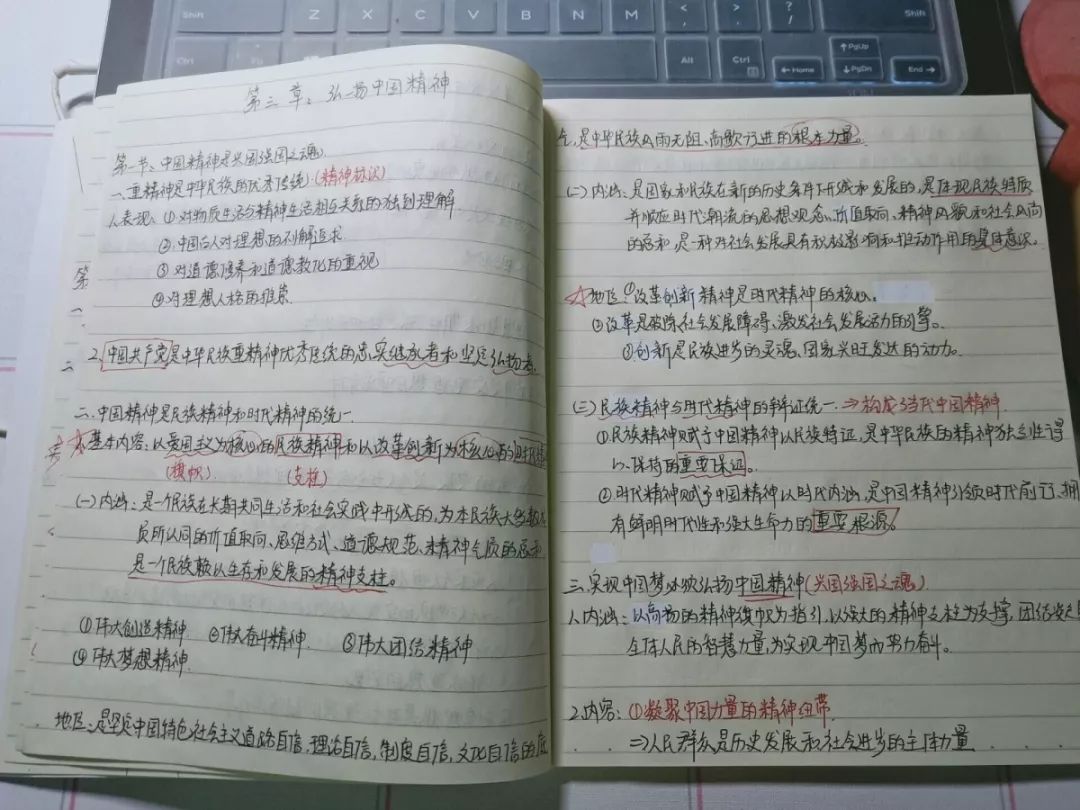 Shift
Z X C V B N M < , > . ? / Shift
Fn Alt Ctrl Home PgUp PgDn End
第三章:弘扬中国精神
第一节、中国精神是兴国强国之魂
一、重精神是中华民族的优秀传统(精神标识)
1.表现:①对物质生活与精神生活相互关系的独到理解
②中国古人对理想的不懈追求
③对道德修养和道德教化的重视
④对理想人格的推崇
第
一
二
2.中国共产党是中华民族重精神优秀传统的忠实继承者和坚定弘扬者
二.中国精神是民族精神和时代精神的统一
基本内容:以爱国主义为核心的民族精神和以改革创新为核心的时代精
(旗帜) (支柱)
(一)内涵:是一个民族在长期共同生活和社会实践中形成的,为本民族大多数
员所认同的价值取向、思维方式、道德规范、精神气质的总和
是一个民族赖以生存和发展的精神支柱。
①伟大创造精神 ②伟大奋斗精神 ③伟大团结精神
④伟大梦想精神
地位:是坚定中国特色社会主义道路自信,理论自信,制度自信,文化自信的
是中华民族风雨无阻、高歌行进的根本力量。
(二)内涵:是国家和民族在新的历史条件下形成和发展的,是体现民族特质
并顺应时代潮流的思想观念、价值取向、精神风貌和社会风尚
的总和,是一种对社会发展具有积极影响和推动作用的集体意识。
地位①改革创新精神是时代精神的核心。
②改革是破除社会发展障碍、激发社会发展活力的引擎。
③创新是民族进步的灵魂、国家兴旺发达的动力。
(三)民族精神与时代精神的辩证统一⇒构成了当代中国精神
①民族精神赋予中国精神以民族特征,是中华民族的精神独立性得
以保持的重要保证。
②时代精神赋予中国精神以时代内涵,是中国精神引领时代前行、拥
有鲜明时代性和强大生命力的重要根源。
三.实现中国梦必须弘扬中国精神(兴国强国之魂)
1.内涵:以高扬的精神旗帜为指引,以强大的精神支柱为支撑,团结凝
全体人民的智慧力量,为实现中国梦而努力奋斗。
2.内容:①凝聚中国力量的精神纽带
⇒人民群众是历史发展和社会进步的主体力量